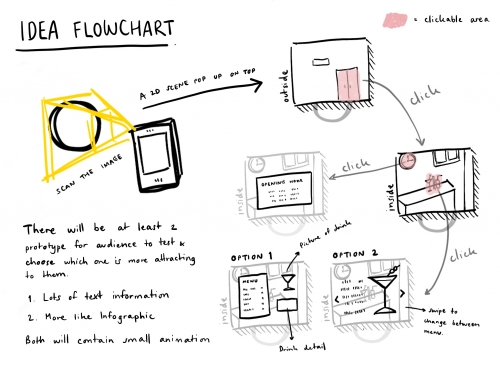 IDEA FLOWCHART
= clickable area
A 2D SCENE POP UP ON TOP
outside
click
SCAN THE IMAGE
click
OPENING HOUR
inside
inside
click
There will be at least 2
prototype for audience to test &
choose which one is more attracting
to them.
1. Lots of text information
2. More like Infographic
Both will contain small animation
OPTION 1
Picture of drink
MENU
inside
Drink detail
OPTION 2
inside
swipe to
change between
menu.